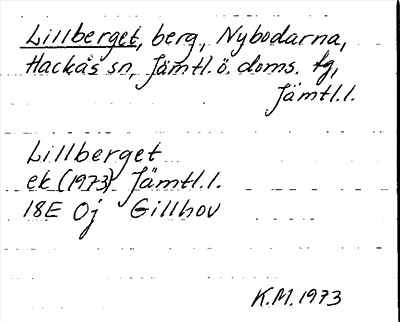 Lillberget, berg, Nybodarna,
Hackås sn, Jämtl. ö. doms. tg,
Jämtl. l.
Lillberget
ek (1973) Jämtl. l.
18E Oj Gillhov
K.M. 1973